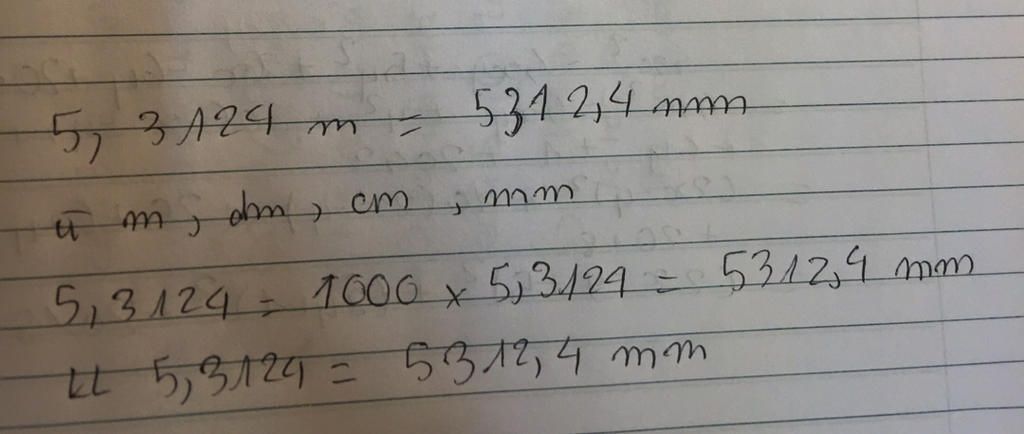 5,3124 m = 5312,4 mm
m, dm, cm, mm
5,3124 = 1000 x 5,3124 = 5312,4 mm
5,3124 = 5312,4 mm